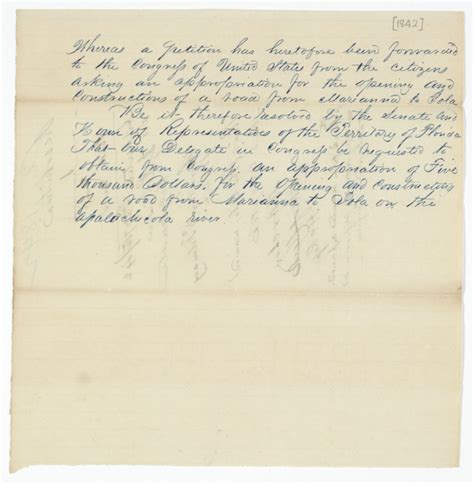 [1842]
Whereas a Petition has heretofore been forwarded
to the Congress of United States from the citizens
asking an appropriation for the opening and
Constructions of a road from Marianna to Iola
Be it therefore resolved by the Senate and
House of Representatives of the Territory of Florida
That our Delegate in Congress be requested to
obtain from Congress an appropriation of Five
thousand Dollars, for the opening and Constructions
of a road from Marianna to Iola on the
apalachicola river.